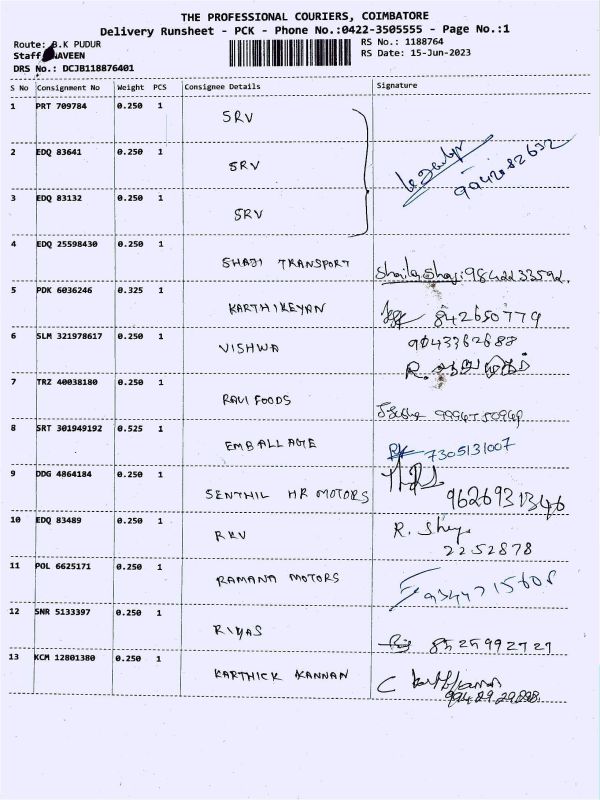 THE PROFESSIONAL COURIERS, COIMBATORE
Delivery Runsheet - PCK - Phone No.:0422-3505555 - Page No.:1
Route: B.K PUDUR
RS No.: 1188764
Staff NAVEEN
RS Date: 15-Jun-2023
DRS No.: DCJB118876401
S No Consignment No Weight PCS Consignee Details Signature
1 PRT 709784 0.250 1 SRV
2 EDQ 83641 0.250 1 SRV
3 EDQ 83132 0.250 1 SRV
4 EDQ 25598430 0.250 1 SHAJI TRANSPORT 9842233592.
5 PDK 6036246 0.325 1 KARTHIKEYAN 842650779
6 SLM 321978617 0.250 1 VISHWA 9043362688
R.
7 TRZ 40038180 0.250 1 RAVI FOODS
8 SRT 301949192 0.525 1 EMBALLAGE 7305131007
9 DDG 4864184 0.250 1 SENTHIL HR MOTORS 9626931346
10 EDQ 83489 0.250 1 RKV R.
2252878
11 POL 6625171 0.250 1 RAMANA MOTORS
12 SNR 5133397 0.250 1 RIYAS 8525992727
13 KCM 12801380 0.250 1 KARTHICK KANNAN